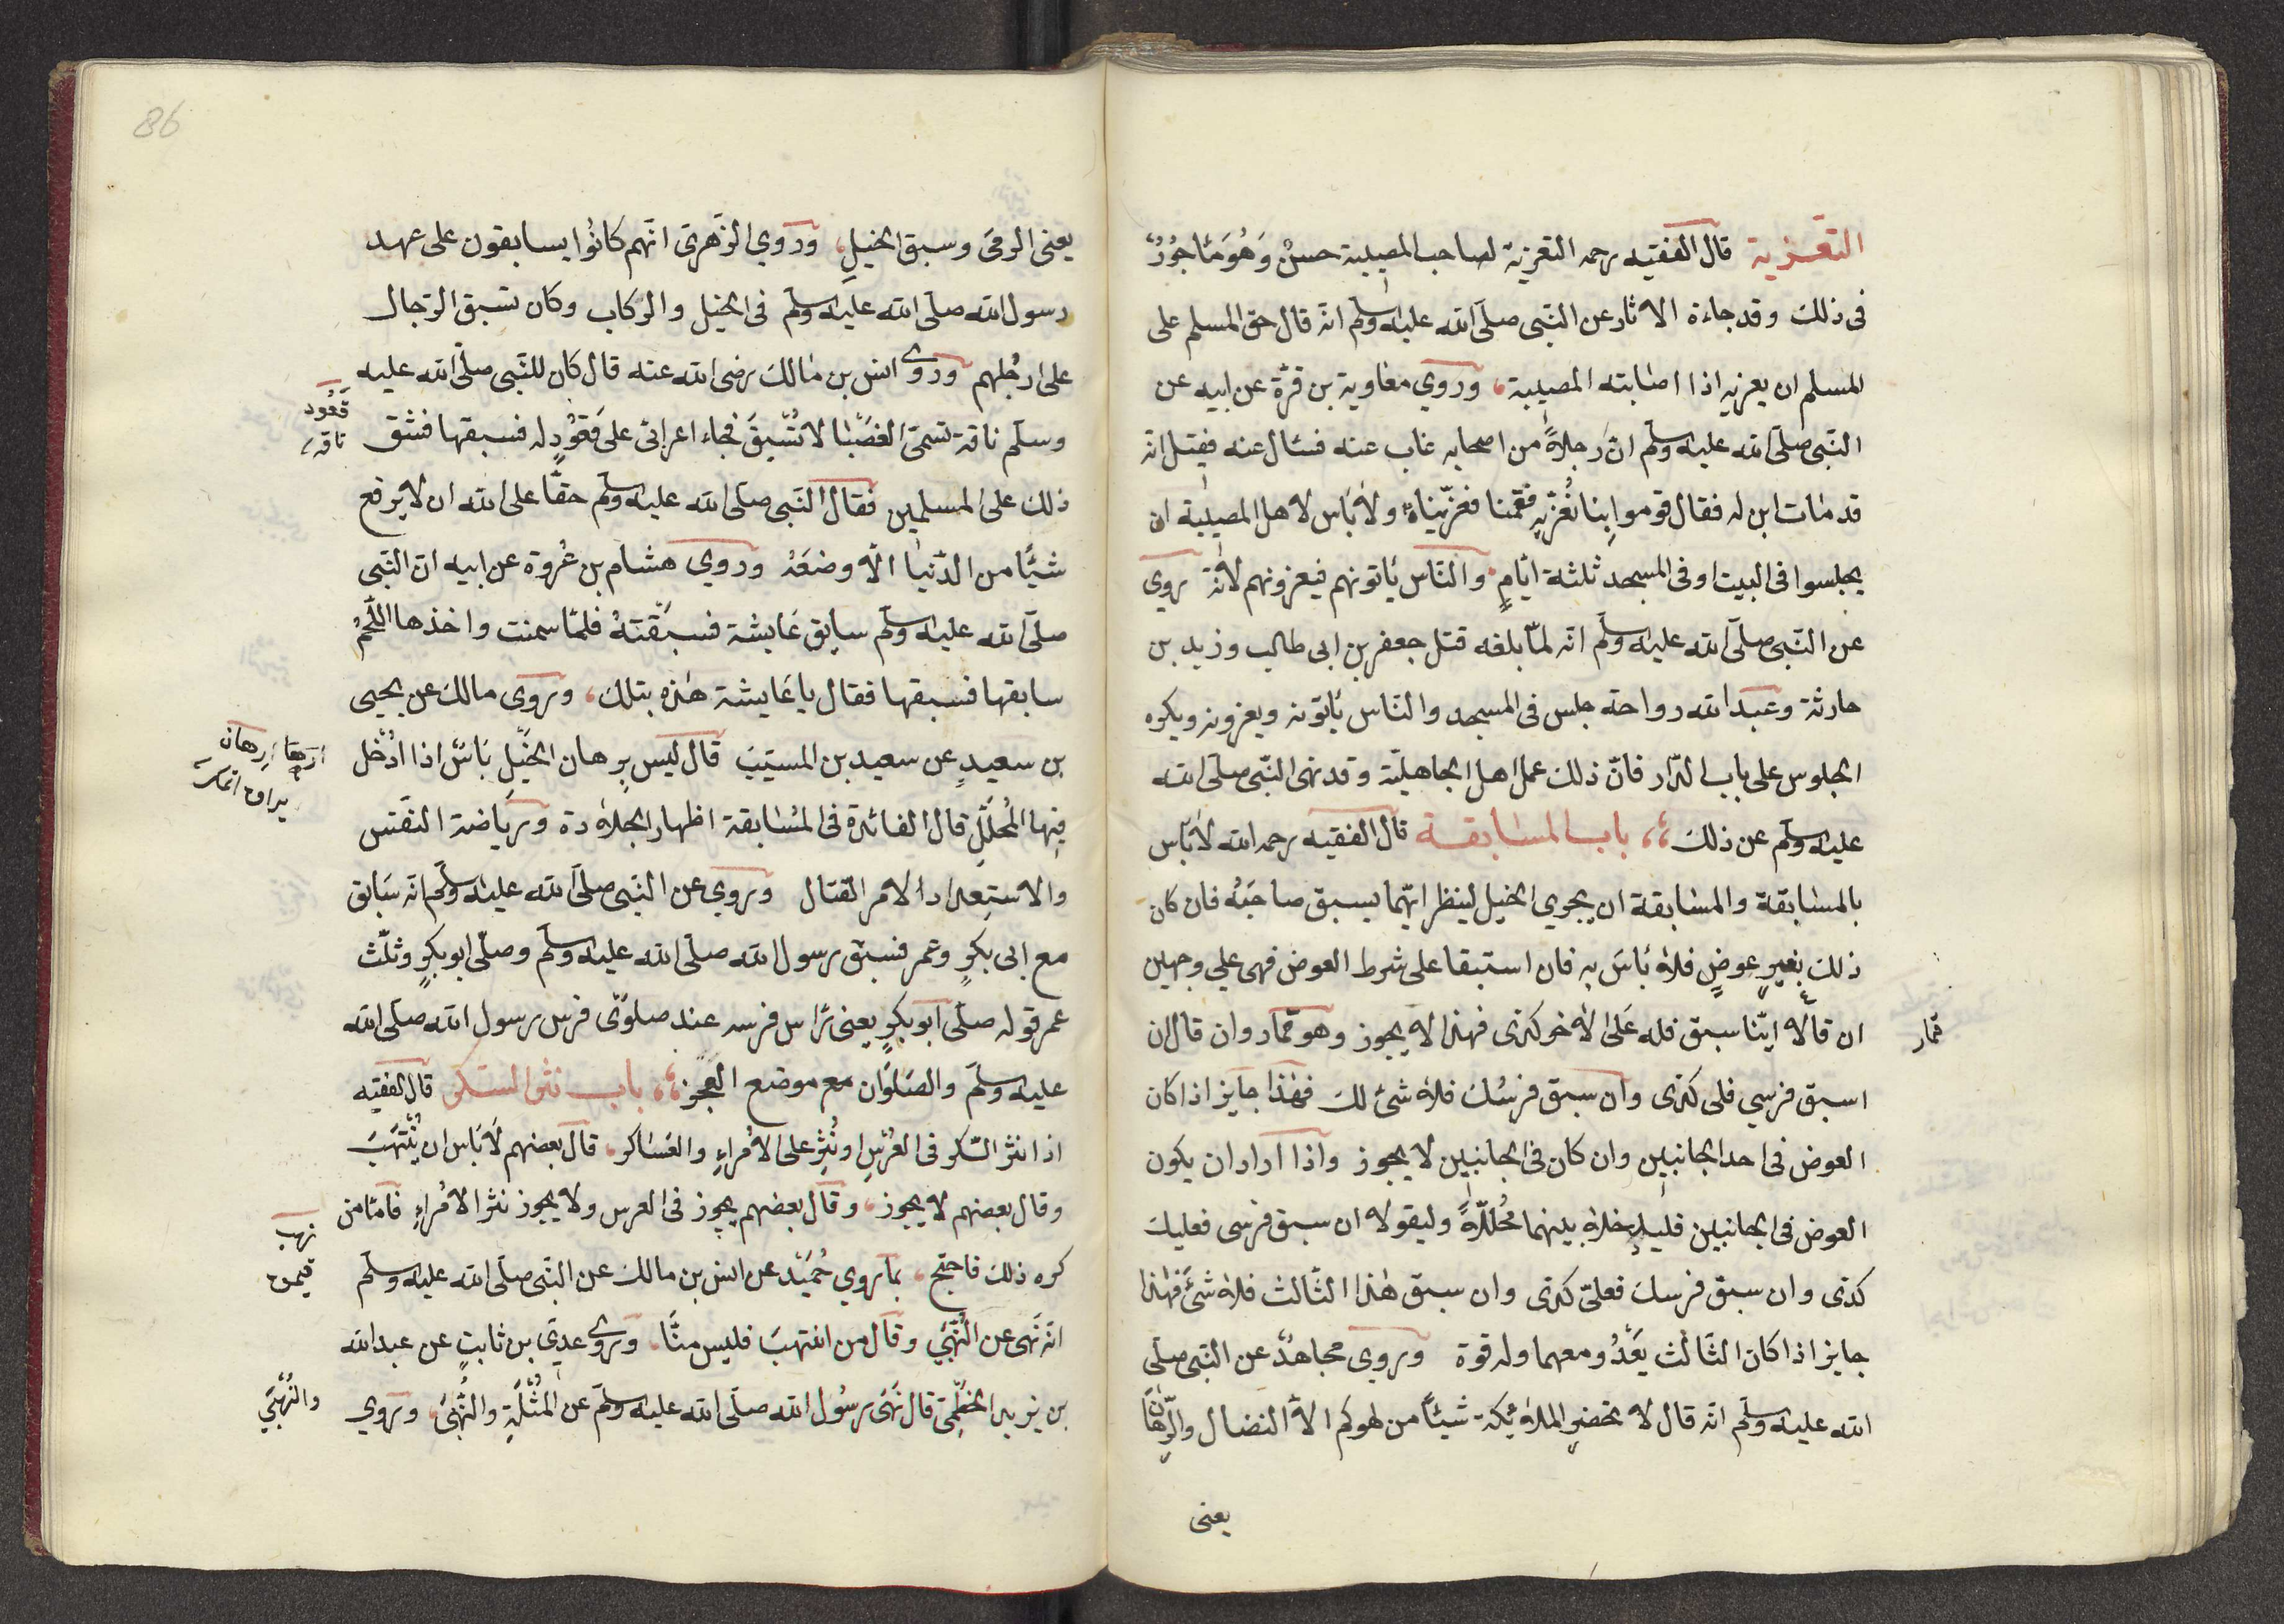 التعزية قال الفقيه رحمه التعزية لصاحب المصيبة حسنٌ وَهُوَ مَاجُوْرٌ
فى ذلك وقد جاءة الاثار عن النّبى صلّى الله عليه وسلّم انّه قال حق المسلم على
المسلم ان يعزيه اذا اصابته المصيبة، وروي معاوية بن قرّة عن ابيه عن
النّبى صلّى الله عليه وسلّم انّ رجلاً من اصحابه غاب عنه فسئال عنه فقيل انّه
قد مات ابن له فقال قوموا بِنا نُعَزّيهِ فقُمْنا فعزّيناهُ ولا بَاس لاهل المصيبة ان
يجلسوا فى البيت او فى المسجد ثلثة ايّامٍ والنّاس يَاتونهم فيعزونهم لانّه روي
عن النّبى صلّى الله عليه وسلّم انّه لمّا بلغه قتل جعفر بن ابى طالب وزيد بن
حارثة وعبد الله رواحة جلس فى المسجد والنّاس يَاتونه ويعزونه ويكره
الجلوس على باب الدّار فانّ ذلك عمل اهل الجاهليّة وقد نهى النّبى صلّى الله
عليه وسلّم عن ذلك، باب المسابقة قال الفقيه رحمه الله لا بَاس
بالمسابقة والمسابقة ان يجري الخيل لينظر ايّهما يسبق صاحبَهُ فان كان
ذلك بغيرِ عوضٍ فلا بَاسَ به فان استبقا على شرط العوض فهى علي وجهين
ان قالا ايّنا سبق فله عَلىَ الاخر كذى فهذا لا يجوز وهو قمار وان قال ان
قمار
اسبق فرسي فلى كذى وان سبق فرسُك فلا شئ لك فهذا جايز اذا كان
العوض فى احد الجانبين وان كان فى الجانبين لا يجوز واذا اراد ان يكون
العوض فى الجانبين فليدخلا بينهما مُحَلّلاً وليقولا ان سبق فرسى فعليك
كذى وان سبق فرسك فعلىّ كذى وان سبق هذا الثّالث فلا شئَ فهذا
جايز اذا كان الثّالث يَعْدُو معهما وله قوة وروي مجاهدٌ عن النّبى صلّى
الله عليه وسلّم انّه قال لا تحضر الملائكة شيئاً من لهوكم الاّ النضال والرِّهَانَ
يعنى
86
يعنى الرمىَ وسبق الخيلِ، وروي الزّهرىّ انّهم كانُوا يسابقون على عهد
رسول الله صلّى الله عليه وسلّم فى الخيل والركاب وكان تسبق الرّجال
على ارجُلِهم وروى انس بن مالك رضى الله عنه قال كان للنّبى صلّى الله عليه
وسلّم ناقة تسمّى الغضبَا لا تُسْبَقَ فجاء اعرابىّ على قَعُوْدٍ له فسبقها فشق
قَعُود
ناقه
ذلك على المسلمين فقال النّبى صلّى الله عليه وسلّم حقًّا على الله ان لا يرفع
شيًّا من الدّنيا الاّ وضعَهُ وروي هشام بن عُروة عن ابيه انّ النّبى
صلّى الله عليه وسلّم سابق عَايشة فسبَقَتهُ فلمّا سمنت واخذها اللّحْمُ
سابقها فسبقها فقال يا عَايشة هذه بتلك، وروى مالك عن يحيى
بن سعيدٍ عن سعيد بن المسيّبَ قال ليس بِرِهان الخَيْلِ بَاسٌ اذا اُدْخل
فِيها المُحَلّل قال الفائدة فى المُسابقة اظهار الجلادة ورياضة النّفس
والاستعداد الامر القتال وروي عن النّبى صلّى الله عليه وسلّم انّه سَابق
مع ابى بكرٍ وعمر فسبق رسول الله صلّى الله عليه وسلّم وصلّى ابو بكرٍ وثلّث
عمر قوله صلّى ابو بكرٍ يعنى رَاس فرسه عند صلوَىْ فرس رسول الله صلّى الله
عليه وسلّم والصَلوَان مع موضع العَجُز، باب نثر السّكر قال الفقيه
اذا نثر السّكر فى العُرسِ او نُثِرَ على الامُراءِ والعَساكر، قال بعضهم لَا بَاس ان يُنْتَهَبَ
وقال بعضهم لا يجوز، وقال بعضهم يجوز فى العرس ولا يجوز نثر الامُراءِ فامّا من
نهب
كره ذلك فاحتج، بما روي حُمَيْد عن انس بن مالك عن النّبى صلّى الله عليه وسلّم
انّه نَهى عن النُّهْبَي وقال من انتهبَ فليس منّا، وروى عدِىّ بن ثابتٍ عن عبد الله
بن يزيد الخطْمِىّ قال نَهىَ رسُول الله صلّى الله عليه وسلّم عن المُثْلَةِ والنُّهْبىَ، وروي
والنُّهْبَي